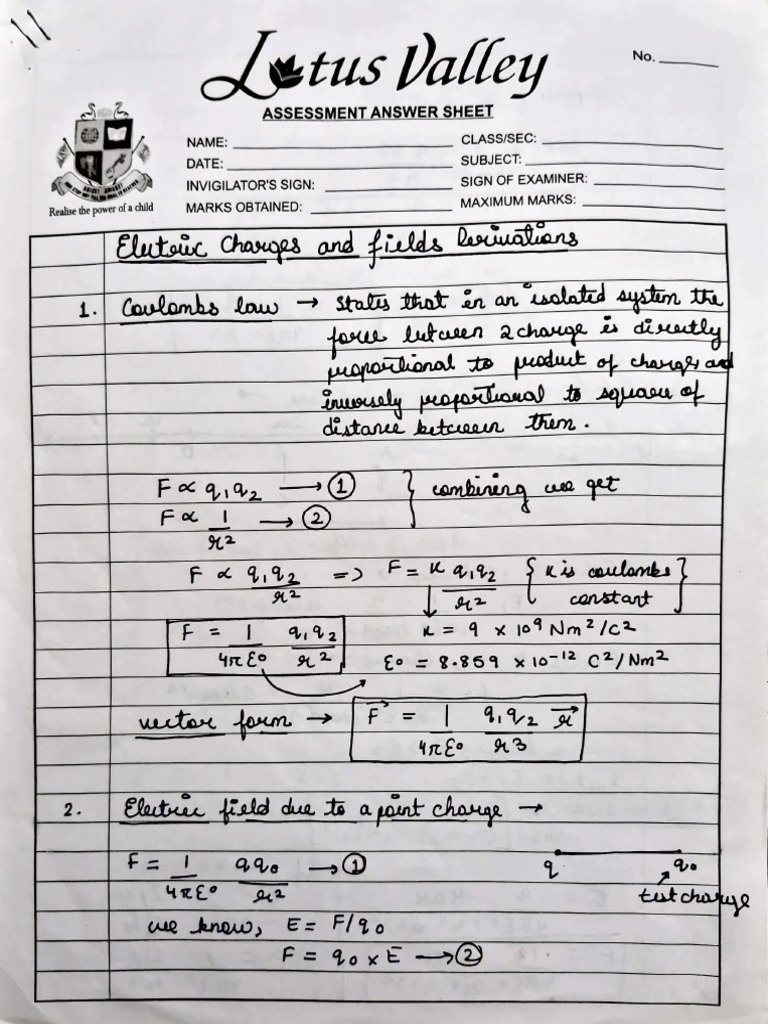 11
Lotus Valley
No. ______
ASSESSMENT ANSWER SHEET
NAME: ______ CLASS/SEC: ______
DATE: ______ SUBJECT: ______
INVIGILATOR'S SIGN: ______ SIGN OF EXAMINER: ______
MARKS OBTAINED: ______ MAXIMUM MARKS: ______
Realise the power of a child
Electric Charges and fields Derivations
1. Coulombs law → States that in an isolated system the
force between 2 charge is directly
proportional to product of charges and
inversely proportional to square of
distance between them.
F ∝ q₁q₂ → ① } combining we get
F ∝ 1/r² → ②
F ∝ q₁q₂/r² => F = K q₁q₂/r² { K is coulombs constant }
F = 1/4πε₀ q₁q₂/r² K = 9 × 10⁹ Nm²/C²
ε₀ = 8.859 × 10⁻¹² C²/Nm²
vector form → F⃗ = 1/4πε₀ q₁q₂/r³ r⃗
2. Electric field due to a point charge →
F = 1/4πε₀ qq₀/r² → ① q q₀
test charge
we know, E = F/q₀
F = q₀ × E → ②